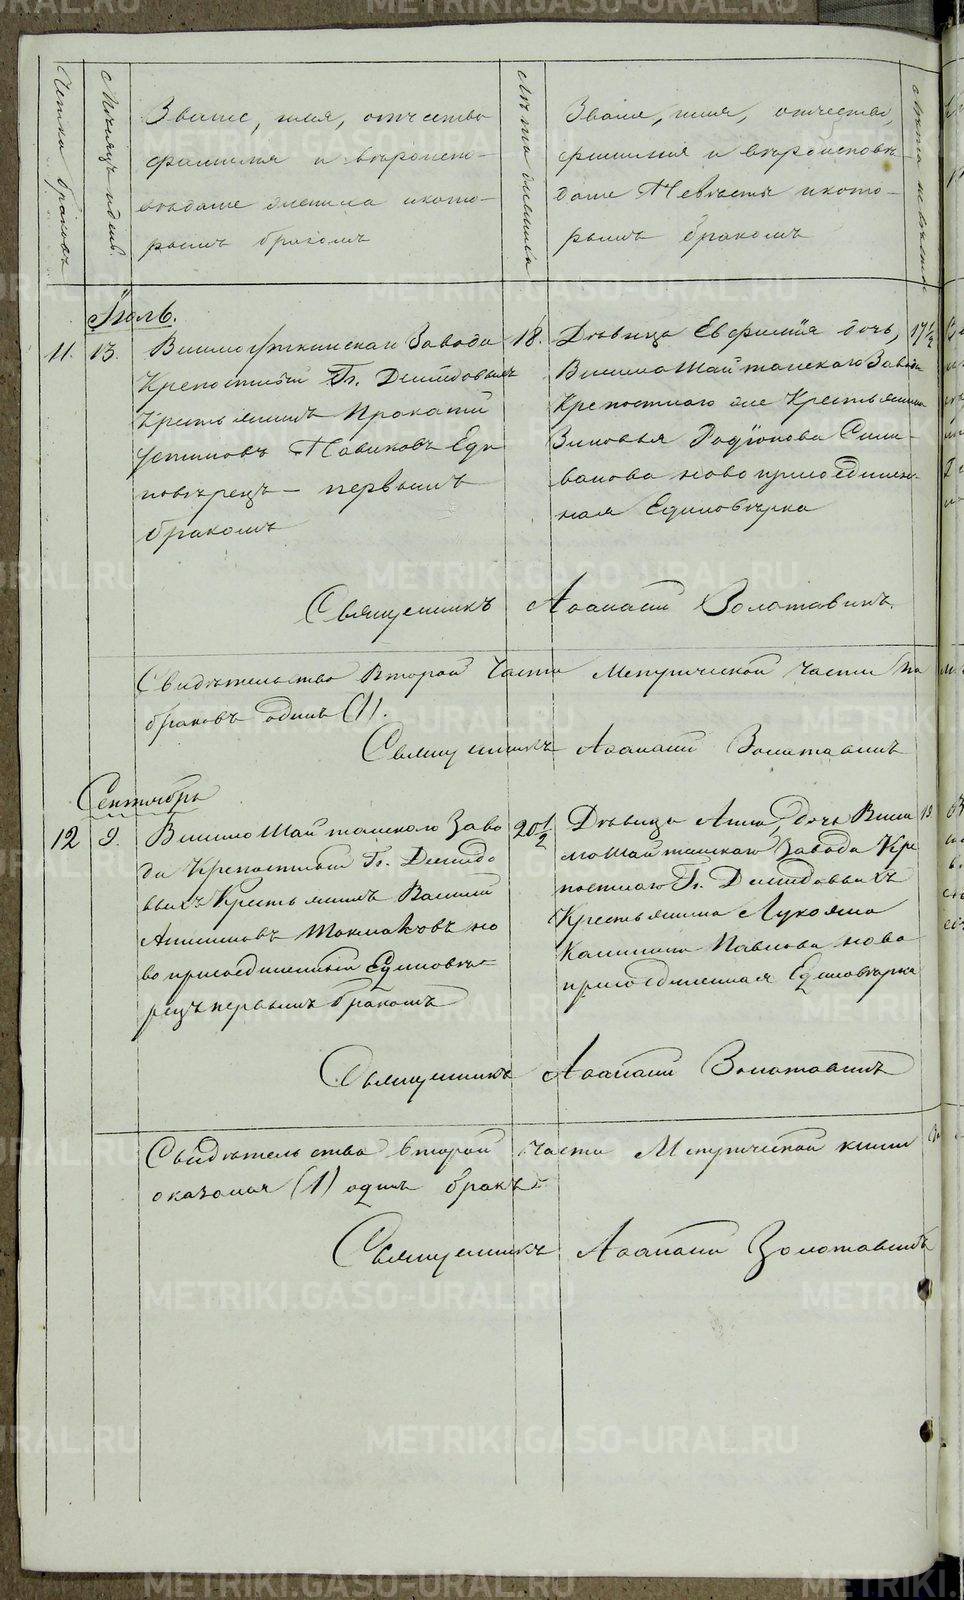 Щетъ браковъ
Мѣсяцъ и день.
Званіе, имя, отчество
фамилия и вѣроиспо-
вѣдание жениха и кото-
рымъ бракомъ
Лѣта жениха
Званіе, имя, отчество,
фамилия и вѣроисповѣ-
дание Невѣсты и кото-
рымъ бракомъ
Лѣта невѣсты
Июль.
11. 13.
Завода
Крепостный Гг. Демидовыхъ
Крестьянинъ
Устиновъ Еди-
новѣрецъ – первымъ
бракомъ
18.
Дѣвица Евфимія дочь,
Висимо Шайтанскаго Завода
Крепостнаго же Крестьянина
Зиновья Родіонова Сели-
ванова ново присоединен-
ная Единовѣрка
17 1/2
Священникъ Аѳанасій Золотавинъ.
Свидѣтельство Второй Части Метрической части
браковъ одинъ (1).
Священникъ Аѳанасій Золотавинъ
Сентябрь
12 9.
Висимо Шайтанскаго Заво
да Крепостный Гг. Демидо
выхъ Крестьянинъ Василий
но
во присоединенный Единовѣ-
рецъ первымъ бракомъ
20 1/2
Дѣвица Анна, дочь Виси
мо Шайтанскаго Завода Кре
постнаго Гг. Демидовыхъ
Крестьянина
Калинина Павлова ново
присоединенная Единовѣрка
19.
Священникъ Аѳанасій Золотавинъ
Свидѣтельства второй части Метрической книги
оказалося (1) одинъ бракъ
Священникъ Аѳанасій Золотавинъ
METRIKI.GASO-URAL.RU